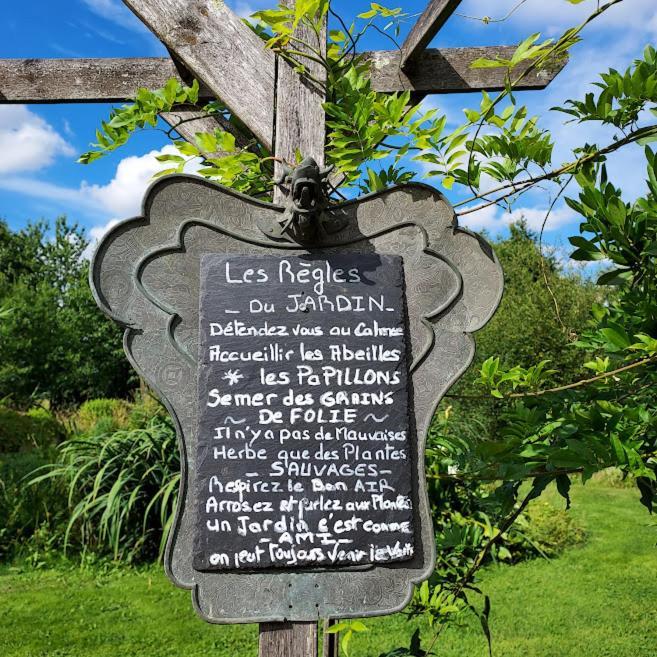 Les Règles
_ Du JARDIN_
Détendez vous au Calme
Accueillir les Abeilles
* les PaPILLONS
Semer des GRAINS
~ De FOLIE ~
Il n'y a pas de Mauvaises
Herbe que des Plantes
_ SAUVAGES_
Respirez le Bon AIR
Arrosez et parlez aux Plantes
un Jardin c'est comme
_AMI_
on peut Toujours Venir le Voir